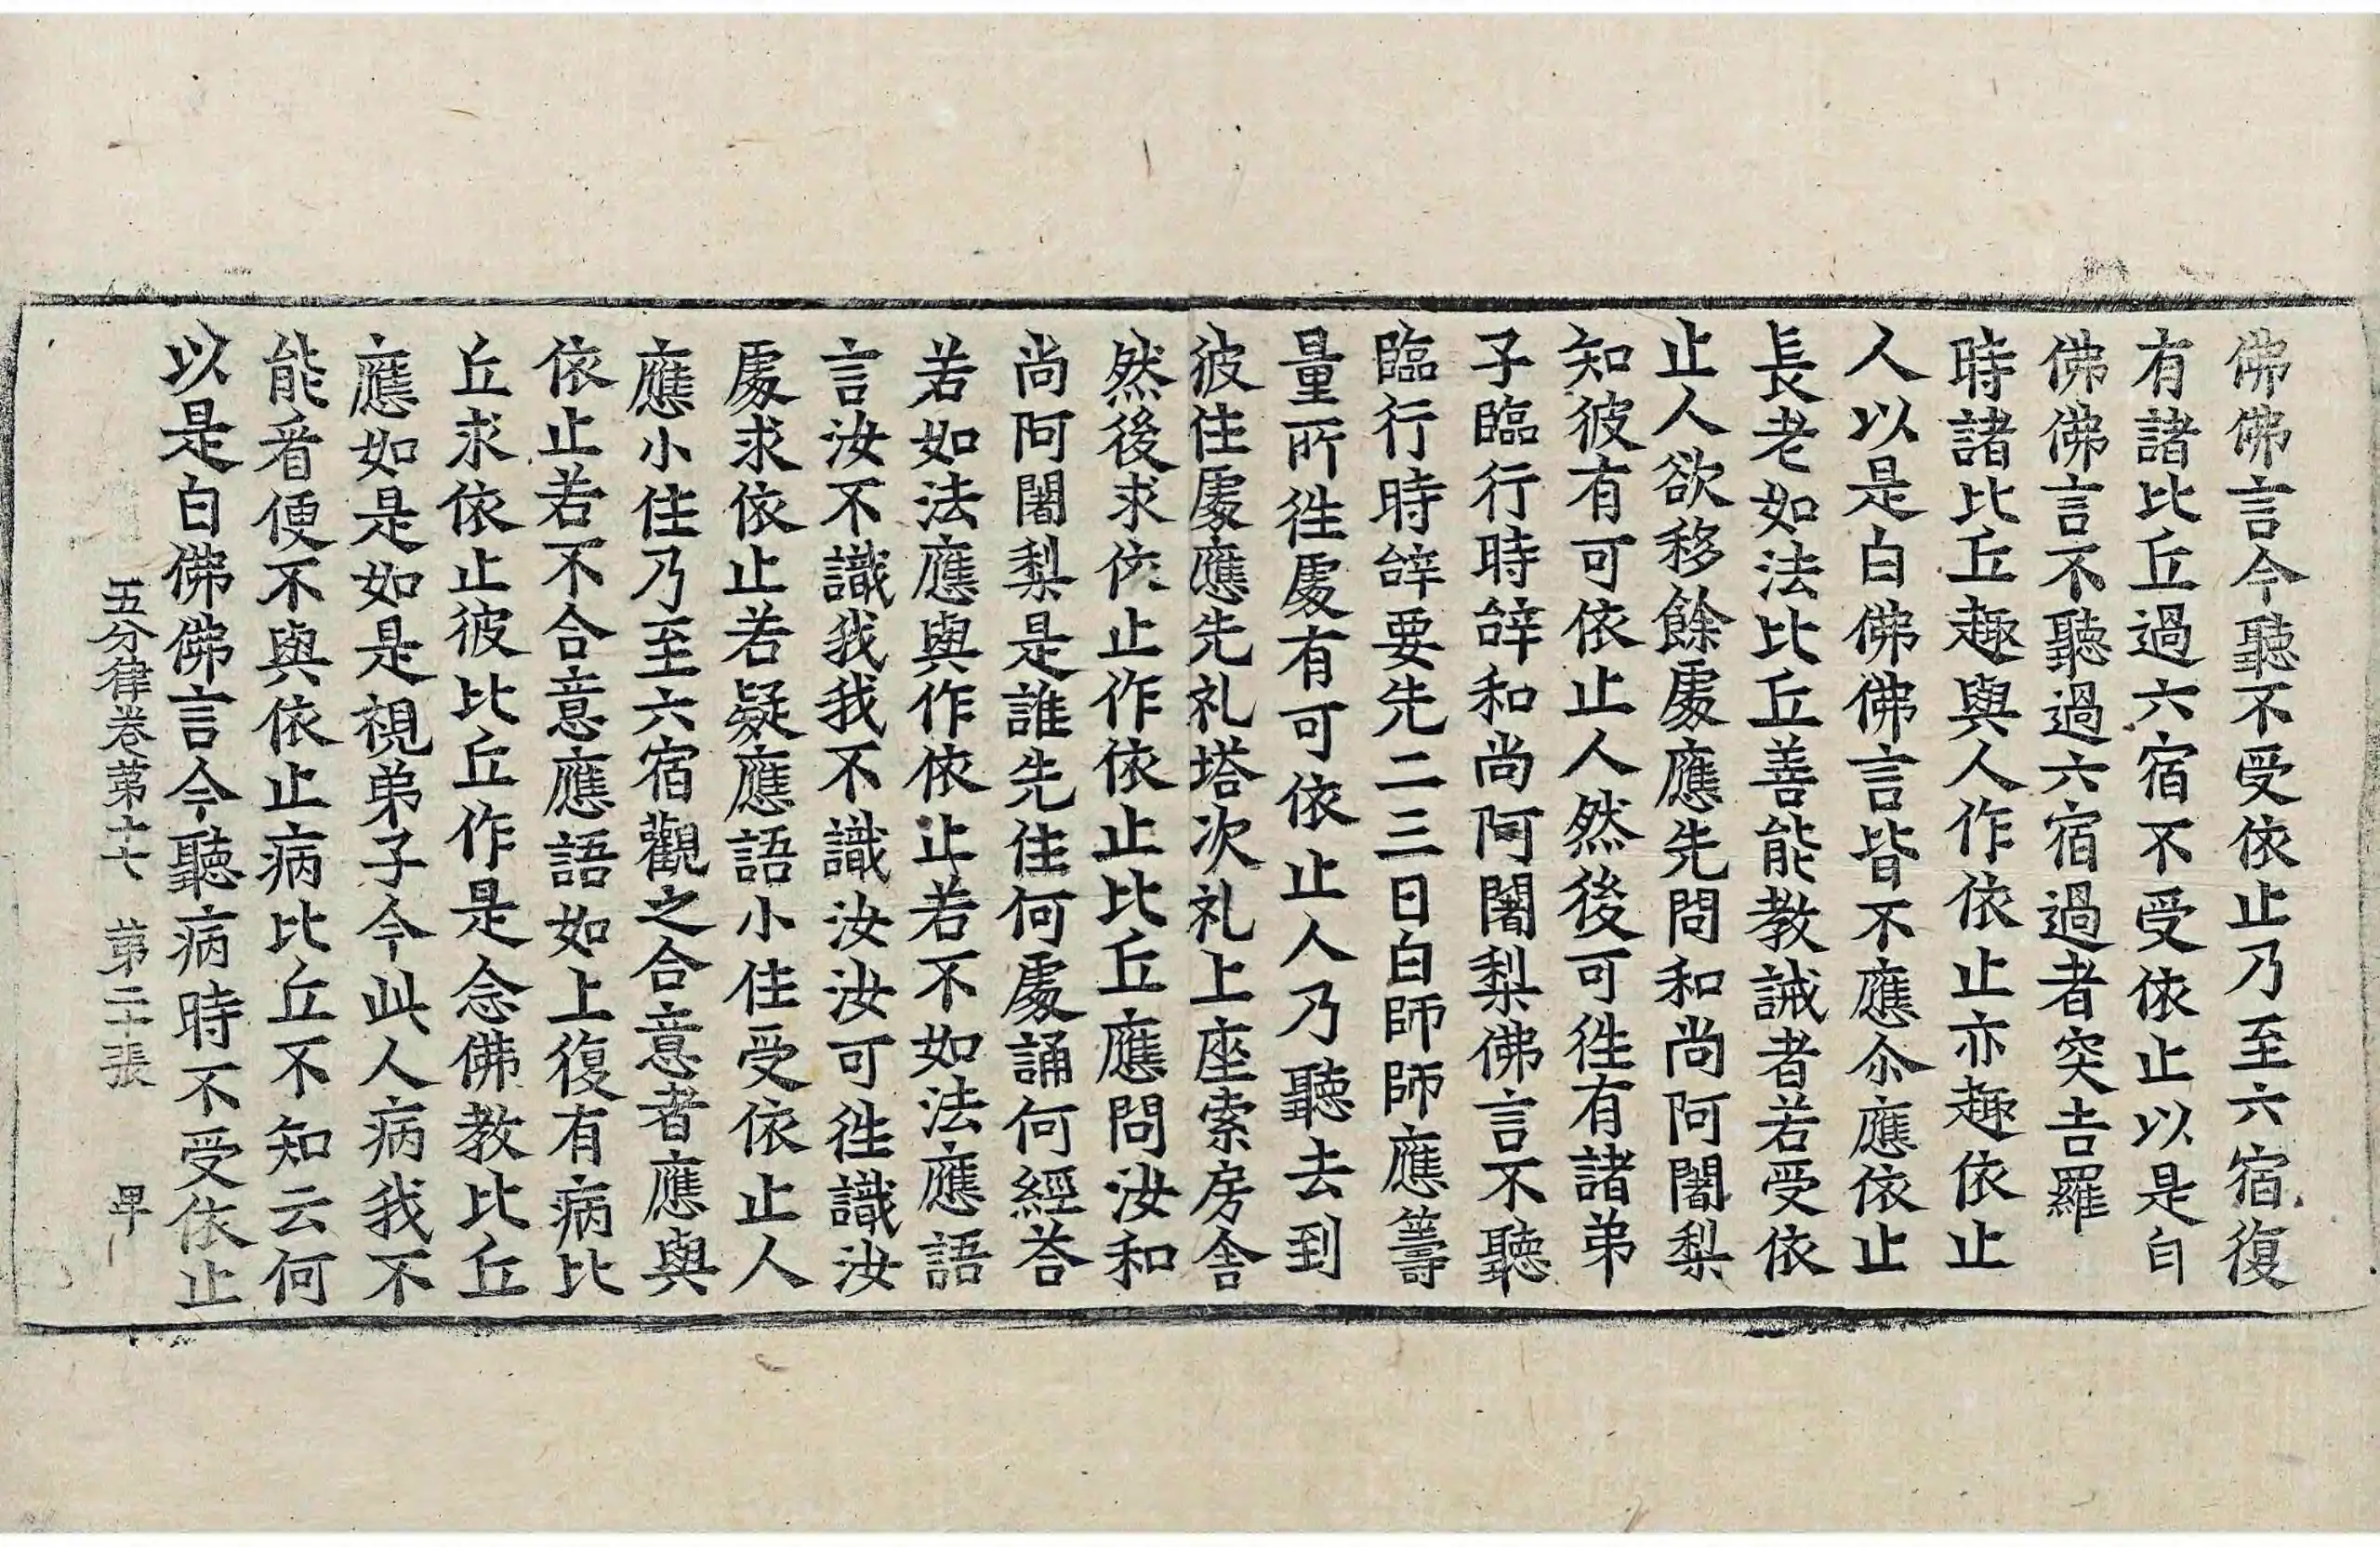 佛佛言今聽不受依止乃至六宿復
有諸比丘過六宿不受依止以是白
佛佛言不聽過六宿過者突吉羅
時諸比丘趣與人作依止亦趣依止
人以是白佛佛言皆不應尒應依止
長老如法比丘善能教誡者若受依
止人欲移餘處應先問和尚阿闍梨
知彼有可依止人然後可徃有諸弟
子臨行時辝和尚阿闍梨佛言不聽
臨行時辝要先二三日白師師應籌
量所徃處有可依止人乃聽去到
彼住處應先礼塔次礼上座索房舍
然後求依止作依止比丘應問汝和
尚阿闍梨是誰先住何處誦何經荅
若如法應與作依止若不如法應語
言汝不識我我不識汝汝可徃識汝
處求依止若疑應語小住受依止人
應小住乃至六宿觀之合意者應與
依止若不合意應語如上復有病比
丘求依止彼比丘作是念佛教比丘
應如是如是視弟子今此人病我不
能看便不與依止病比丘不知云何
以是白佛佛言今聽病時不受依止
五分律卷第十七 第二十張 早